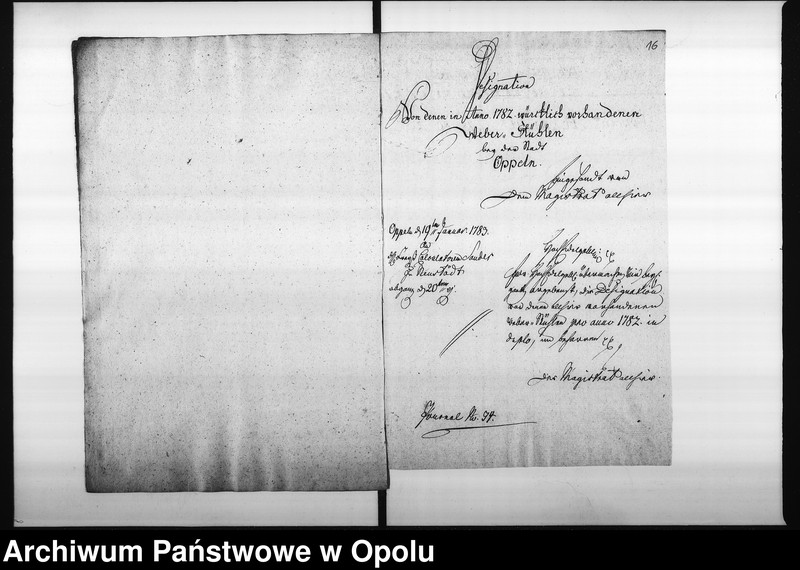 16
Designation
Von denen in Anno 1782. würcklich vorhandenen
Weber-Stühlen
bey der Stadt
Oppeln.
Eingesandt von
Dem Magistrat allhier
Oppeln d. 19. Januar. 1783.
An
Calculatorem Sander
Neustadt
abgeg. d. 20ten ej.
die Designation
von denen allhier vorhandenen
Weber-Stühlen pro anno 1782. in
duplo,
Der Magistrat allhier.
Journal No. 54.
Archiwum Państwowe w Opolu